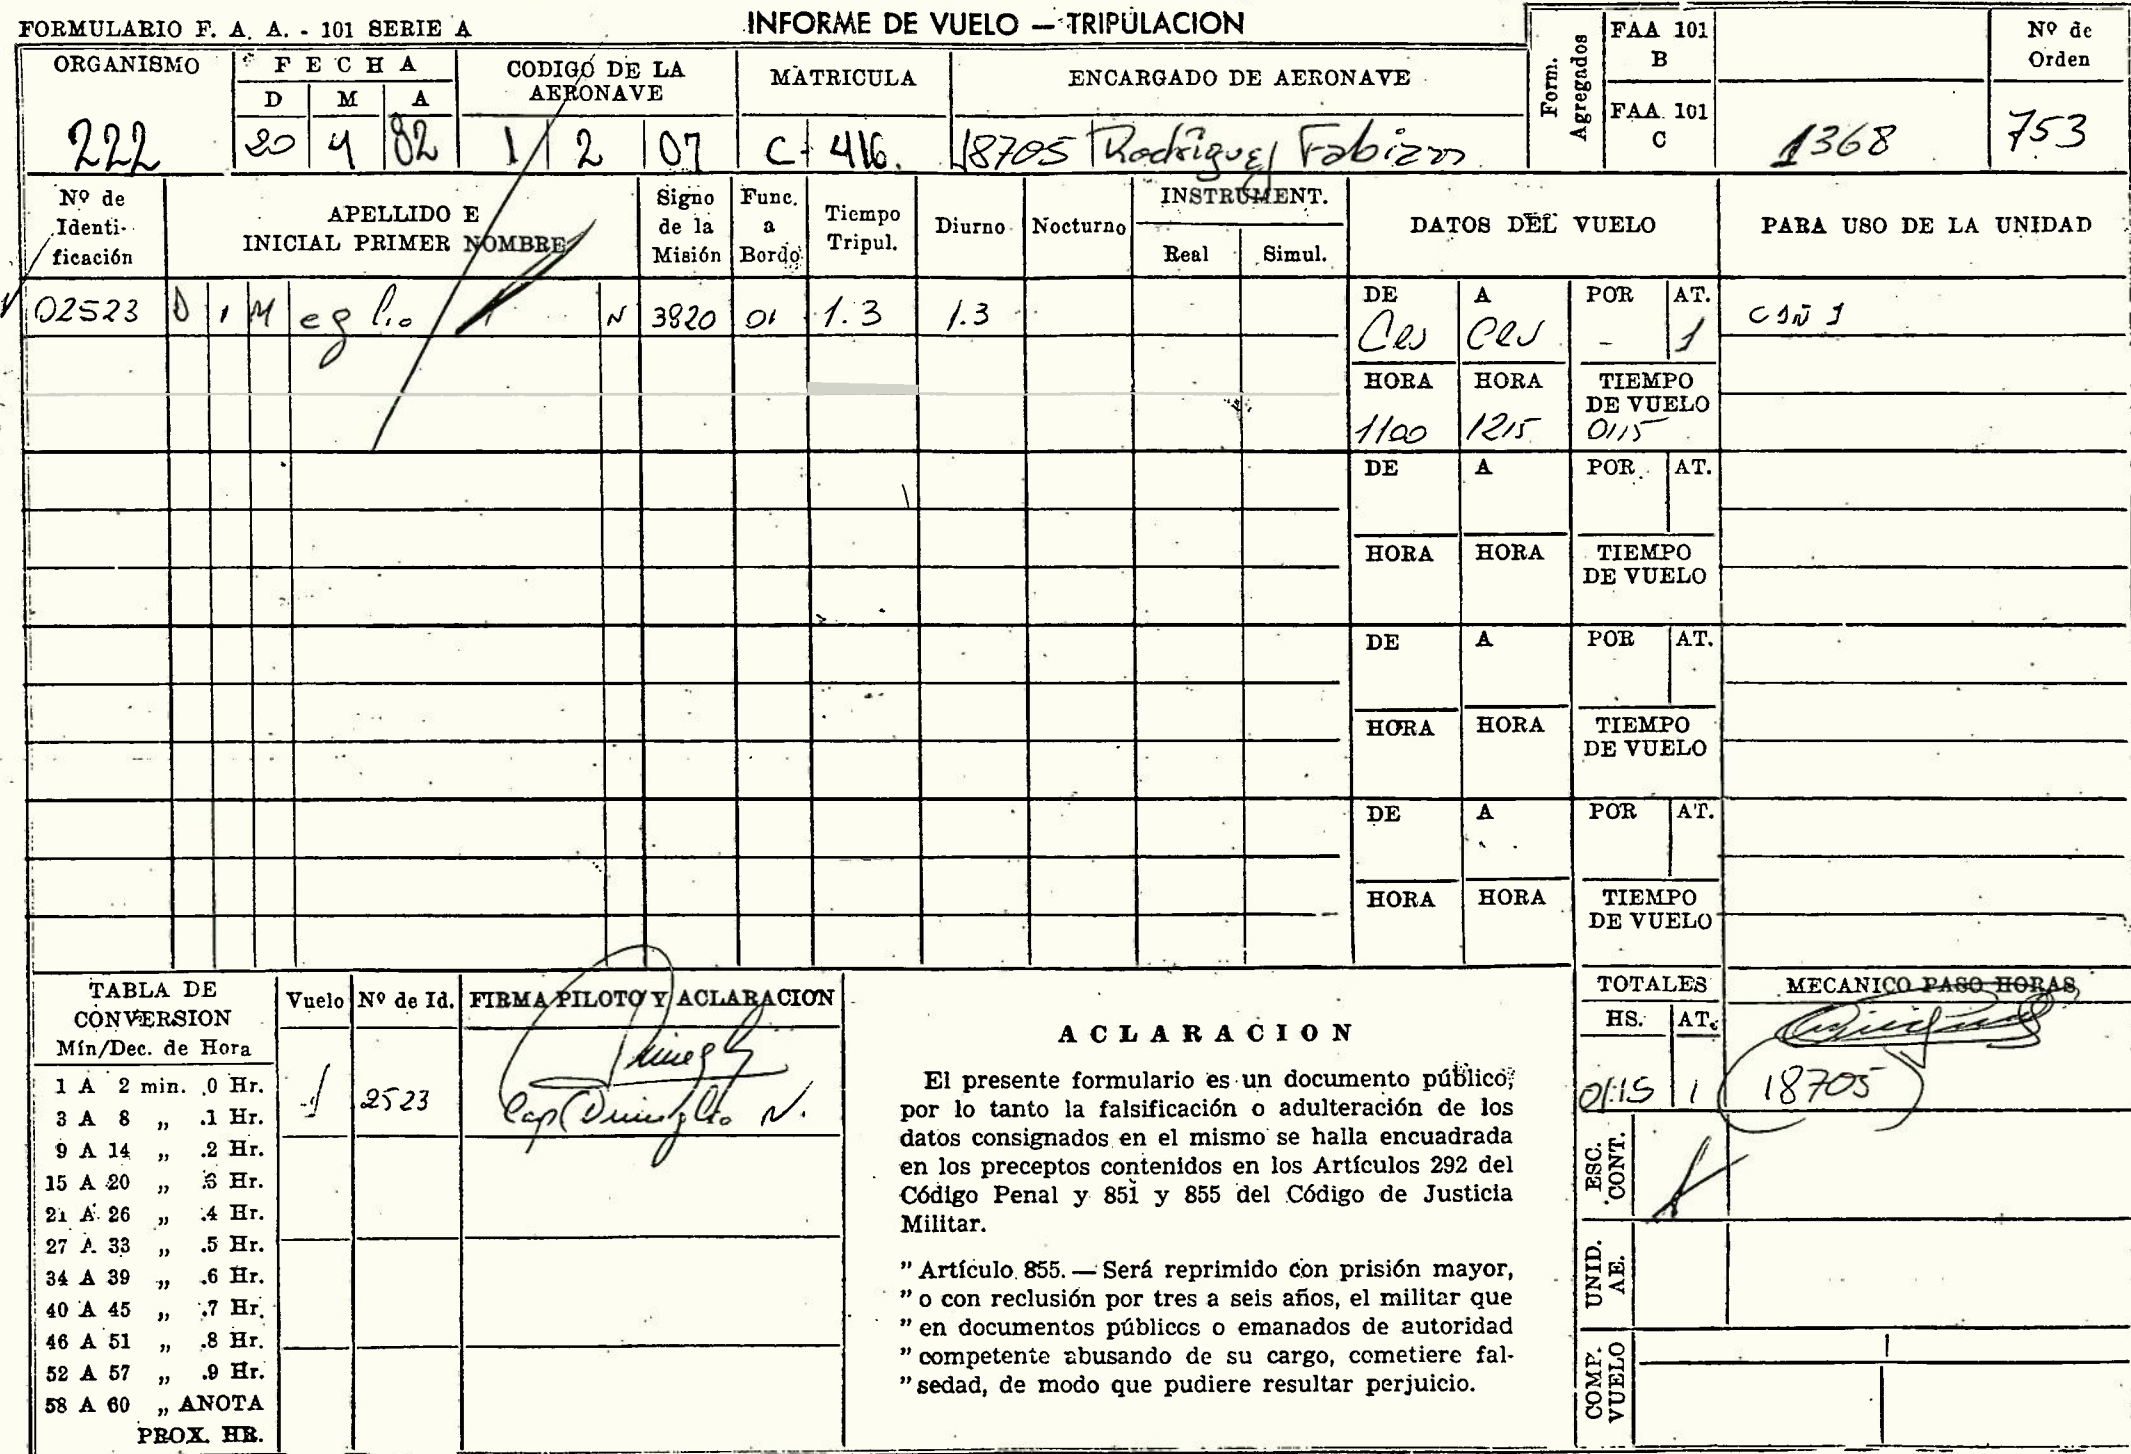 FORMULARIO F. A. A. - 101 SERIE A
INFORME DE VUELO — TRIPULACION
Form. Agregados
FAA 101 B
FAA 101 C 1368
Nº de Orden
753
ORGANISMO
222
FECHA
D M A
20 4 82
CODIGO DE LA AERONAVE
1 2 07
MATRICULA
C- 416.
ENCARGADO DE AERONAVE
18705 Rodríguez Fabian
Nº de Identificación
APELLIDO E INICIAL PRIMER NOMBRE
Signo de la Misión
Func. a Bordo
Tiempo Tripul.
Diurno
Nocturno
INSTRUMENT.
Real Simul.
DATOS DEL VUELO
PARA USO DE LA UNIDAD
02523 D i M eglio N 3820 01 1.3 1.3
DE A POR AT.
- 1
HORA HORA TIEMPO DE VUELO
1100 1215 0115
DE A POR AT.
HORA HORA TIEMPO DE VUELO
DE A POR AT.
HORA HORA TIEMPO DE VUELO
DE A POR AT.
HORA HORA TIEMPO DE VUELO
TABLA DE CONVERSION
Mín/Dec. de Hora
1 A 2 min. .0 Hr.
3 A 8 „ .1 Hr.
9 A 14 „ .2 Hr.
15 A 20 „ .3 Hr.
21 A 26 „ .4 Hr.
27 A 33 „ .5 Hr.
34 A 39 „ .6 Hr.
40 A 45 „ .7 Hr.
46 A 51 „ .8 Hr.
52 A 57 „ .9 Hr.
58 A 60 „ ANOTA
PROX. HR.
Vuelo Nº de Id. FIRMA PILOTO Y ACLARACION
1 2523
Cap Dimeglio N.
ACLARACION
El presente formulario es un documento público,
por lo tanto la falsificación o adulteración de los
datos consignados en el mismo se halla encuadrada
en los preceptos contenidos en los Artículos 292 del
Código Penal y 851 y 855 del Código de Justicia
Militar.
" Artículo 855. — Será reprimido con prisión mayor,
" o con reclusión por tres a seis años, el militar que
" en documentos públicos o emanados de autoridad
" competente abusando de su cargo, cometiere fal-
" sedad, de modo que pudiere resultar perjuicio.
TOTALES
HS. AT.
01:15 1
MECANICO PASO HORAS
18705
ESC. CONT.
UNID. AE.
COMP. VUELO